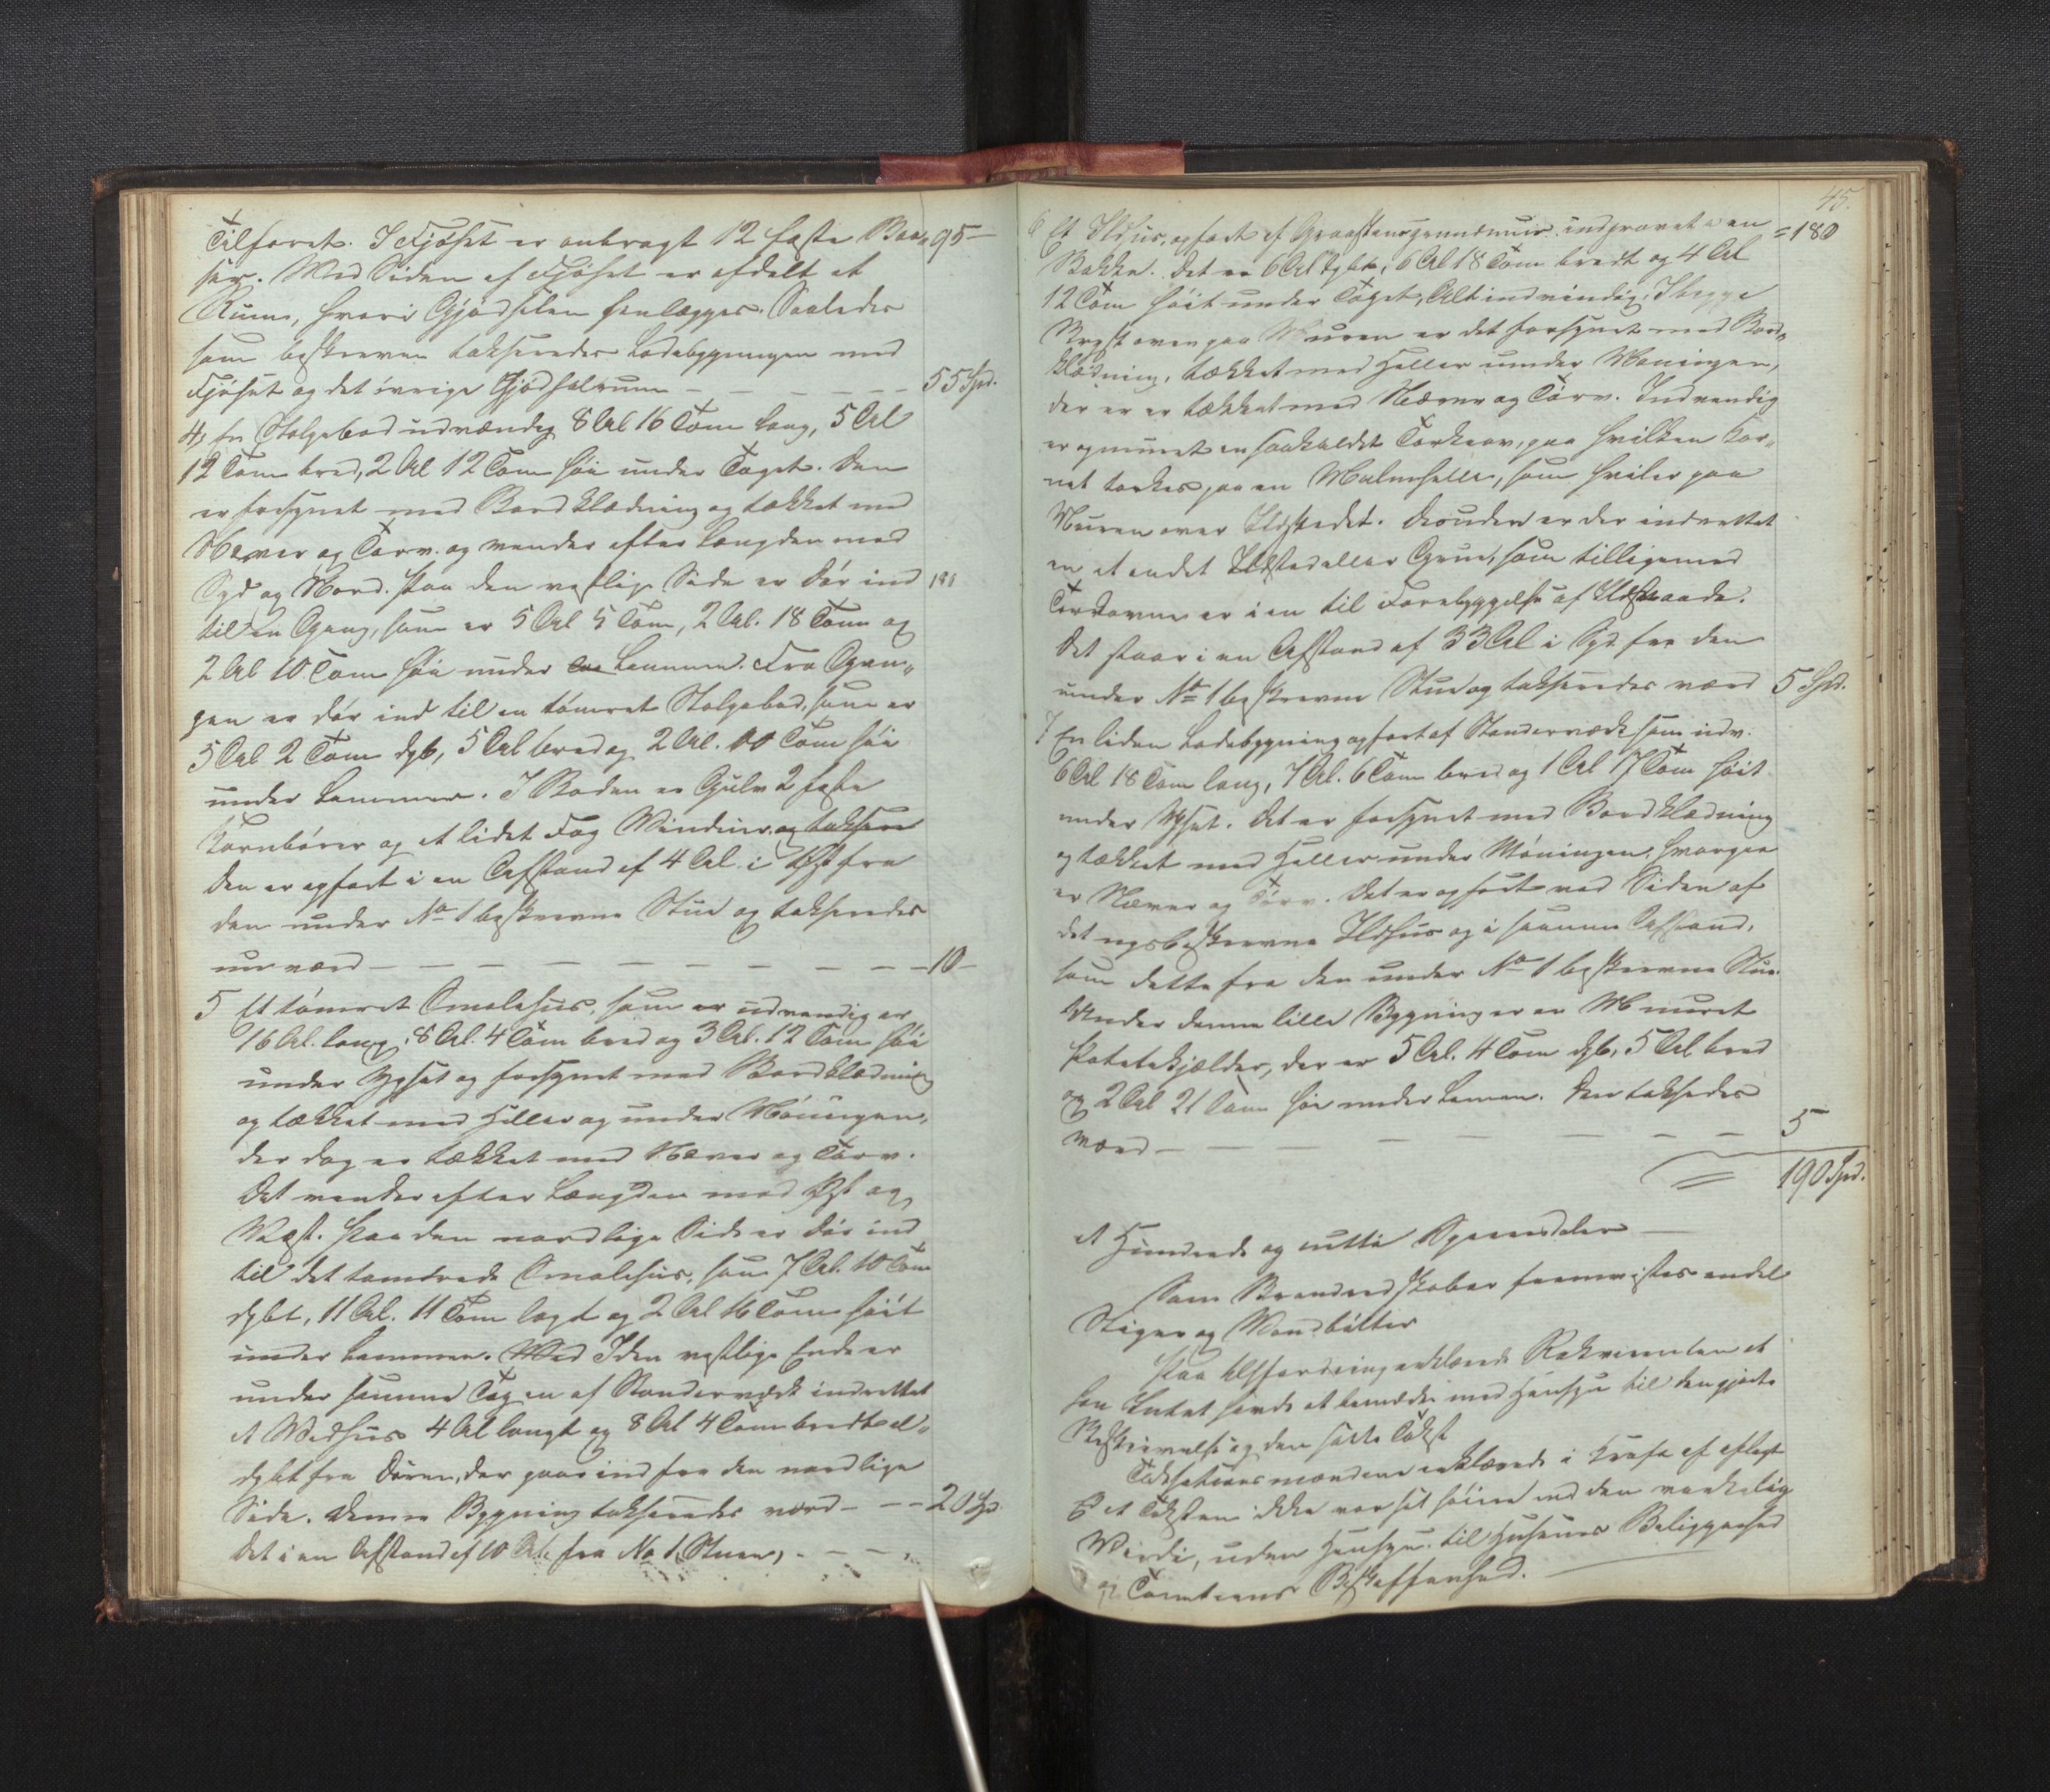 Tilforet. I Fjøset er anbragt 12 faste Baa„ 95 –
ser. Med Siden af Fjøset er afdelt et
Rum, hvori Gjødselen henlægges. Saaledes
som beskreven takseredes Ladebygningen med
Fjøset og det øvrige Gjødselrum – – – – – 55 Spd.
4, En Stolpebod udvændig 8 Al 16 Tom lang, 5 Al
12 Tom bred, 2 Al 12 Tom høi under Taget. Den
er forsynet med Bordklædning og tækket med
Næver og Torv. og vender efter Længden mod
Syd og Nord. Paa den vestlige Side er Dør ind
til en Gang, som er 5 Al 5 Tom, 2 Al. 18 Tom og
2 Al 10 Tom høi under Lemmen. Fra Gan„
gen er Dør ind til en tømret Stolpebod, som er
5 Al 2 Tom dyb, 5 Al bred og 2 Al. 10 Tom høi
under Lemmen. I Boden er Gulv 2 faste
Kornbører og et lidet Fag Vinduer. og taksere
Den er opført i en Afstand af 4 Al i Øst fra
den under No 1 beskrevne Stue og takseredes
nu værd – – – – – – – – – 10 –
5 Et tømret Smalehus, som er udvendig er
16 Al. lang, 8 Al. 4 Tom bred og 3 Al. 12 Tom høi
under Gesimset og forsynet med Bordklædning
og tækket med Heller og under Møningen,
der dog er tækket med Næver og Torv.
Det vender efter Længden mod Øst og
Vest. Paa den nordlige Side er Dør ind
til det tømrede Smalehus, som 7 Al. 10 Tom
dybt, 11 Al. 11 Tom lagt og 2 Al 16 Tom høit
under Lemmen. Ved Iden vestlige Ende er
under samme Tag en af Stendervæsk indrettet
et Vedhus 4 Al langt og 8 Al 4 Tom bredt el„
dybt fra Døren, der gaar ind fra den nordlige
Side. Denne Bygning takseredes værd – – – 20 Spd
Det i en Afstand af 10 Al. fra No 1 Stuen, – – –
45.
6 Et Ildhus, opført af Graastensgrundmuur indgravet i en = 180
Bakke. Det er 6 Al dybt, 6 Al 18 Tom bredt og 4 Al
12 Tom høit under Taget, Alt indvindig. I begge
Bryst oven paa Muren er det forsynet med Bord„
klædning, tækket med Heller under Moningen,
der er er tækket med Næver og Torv. Indvendig
er opmuret en saakaldet Torkeovn, paa hvilken Kor„
net tørkes, paa en Malmhelle, som hviler paa
Muren over Ildstedet. Desuden er der indrettet
en et andet Ildsted eller Grue, som tilligemed
Torkovnen er i en til Forebyggelse af Ildsvaade.
Det staar i en Afstand af 33 Al i Syd fra den
under No 1 beskrevne Stue og takseredes værd 5 Spd.
7 En liden Ladebygning opført af Standerværk som udv.
6 Al 18 Tom lang, 7 Al. 6 Tom bred og 1 Al 17 Tom høit
under Gesimset. Det er forsynet med Bordklædning
og tækket med Heller under Møningen, hvorpaa
er Næver og Torv. Det er opført ved Siden af
det nysbeskrevne Ildhus og i samme Afstand,
som dette fra den under No 1 beskrevne Stue.
Under denne lille Bygning er en Muuret
Potetekjælder, der er 5 Al. 4 Tom dyb, 5 Al bred
og 2 Al 21 Tom høi under Lemmen. Den taksedes
værd – – – – – – – – 5
190 Spd.
et Hundrede og nitti Speciedaler –
Som Brandredskaber fremvistes endel
Stiger og Vandbøtter
Paa Udfordring erklærede Rekvirenten at
han Intet havde at bemærke med Hensyn til den gjorte
Beskrivelse og den satte Takst
Taksationsmændene erklærede i Kraft af aflagt
Ed at Taksten ikke var sat høiere end den virkelig
Værdi, uden Hensyn til Husenes Beliggenhed
og Tomtens Beskaffenhed. –